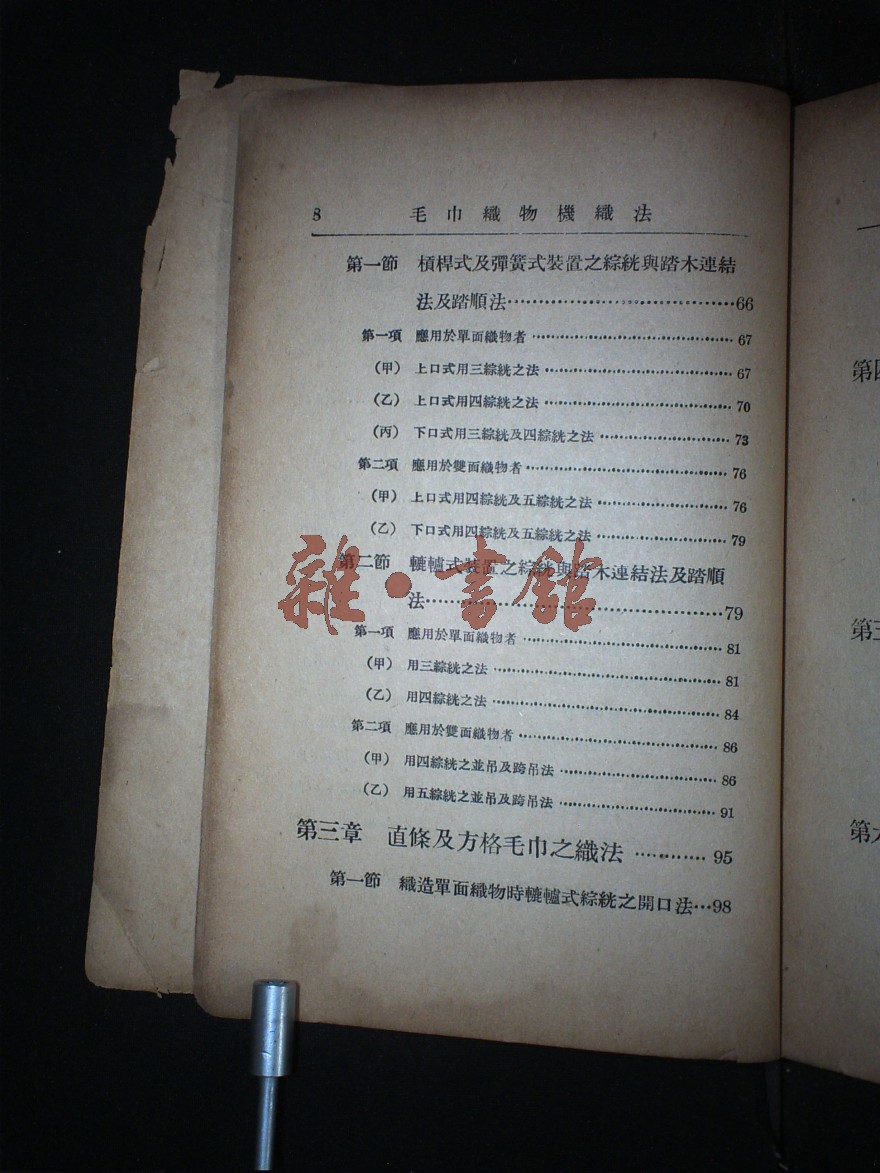 8 毛巾織物機織法
第一節 槓桿式及彈簧式裝置之綜絖與踏木連結
法及踏順法……………………………66
第一項 應用於單面織物者……………………………67
(甲) 上口式用三綜絖之法……………………………67
(乙) 上口式用四綜絖之法……………………………70
(丙) 下口式用三綜絖及四綜絖之法……………………73
第二項 應用於雙面織物者……………………………76
(甲) 上口式用四綜絖及五綜絖之法……………………76
(乙) 下口式用四綜絖及五綜絖之法……………………79
第二節 轆轤式裝置之綜絖與踏木連結法及踏順
法……………………………………79
第一項 應用於單面織物者……………………………81
(甲) 用三綜絖之法……………………………81
(乙) 用四綜絖之法……………………………84
第二項 應用於雙面織物者……………………………86
(甲) 用四綜絖之並吊及跨吊法……………………86
(乙) 用五綜絖之並吊及跨吊法……………………91
第三章 直條及方格毛巾之織法…………95
第一節 織造單面織物時轆轤式綜絖之開口法…98
雜·書館
第
第三
第